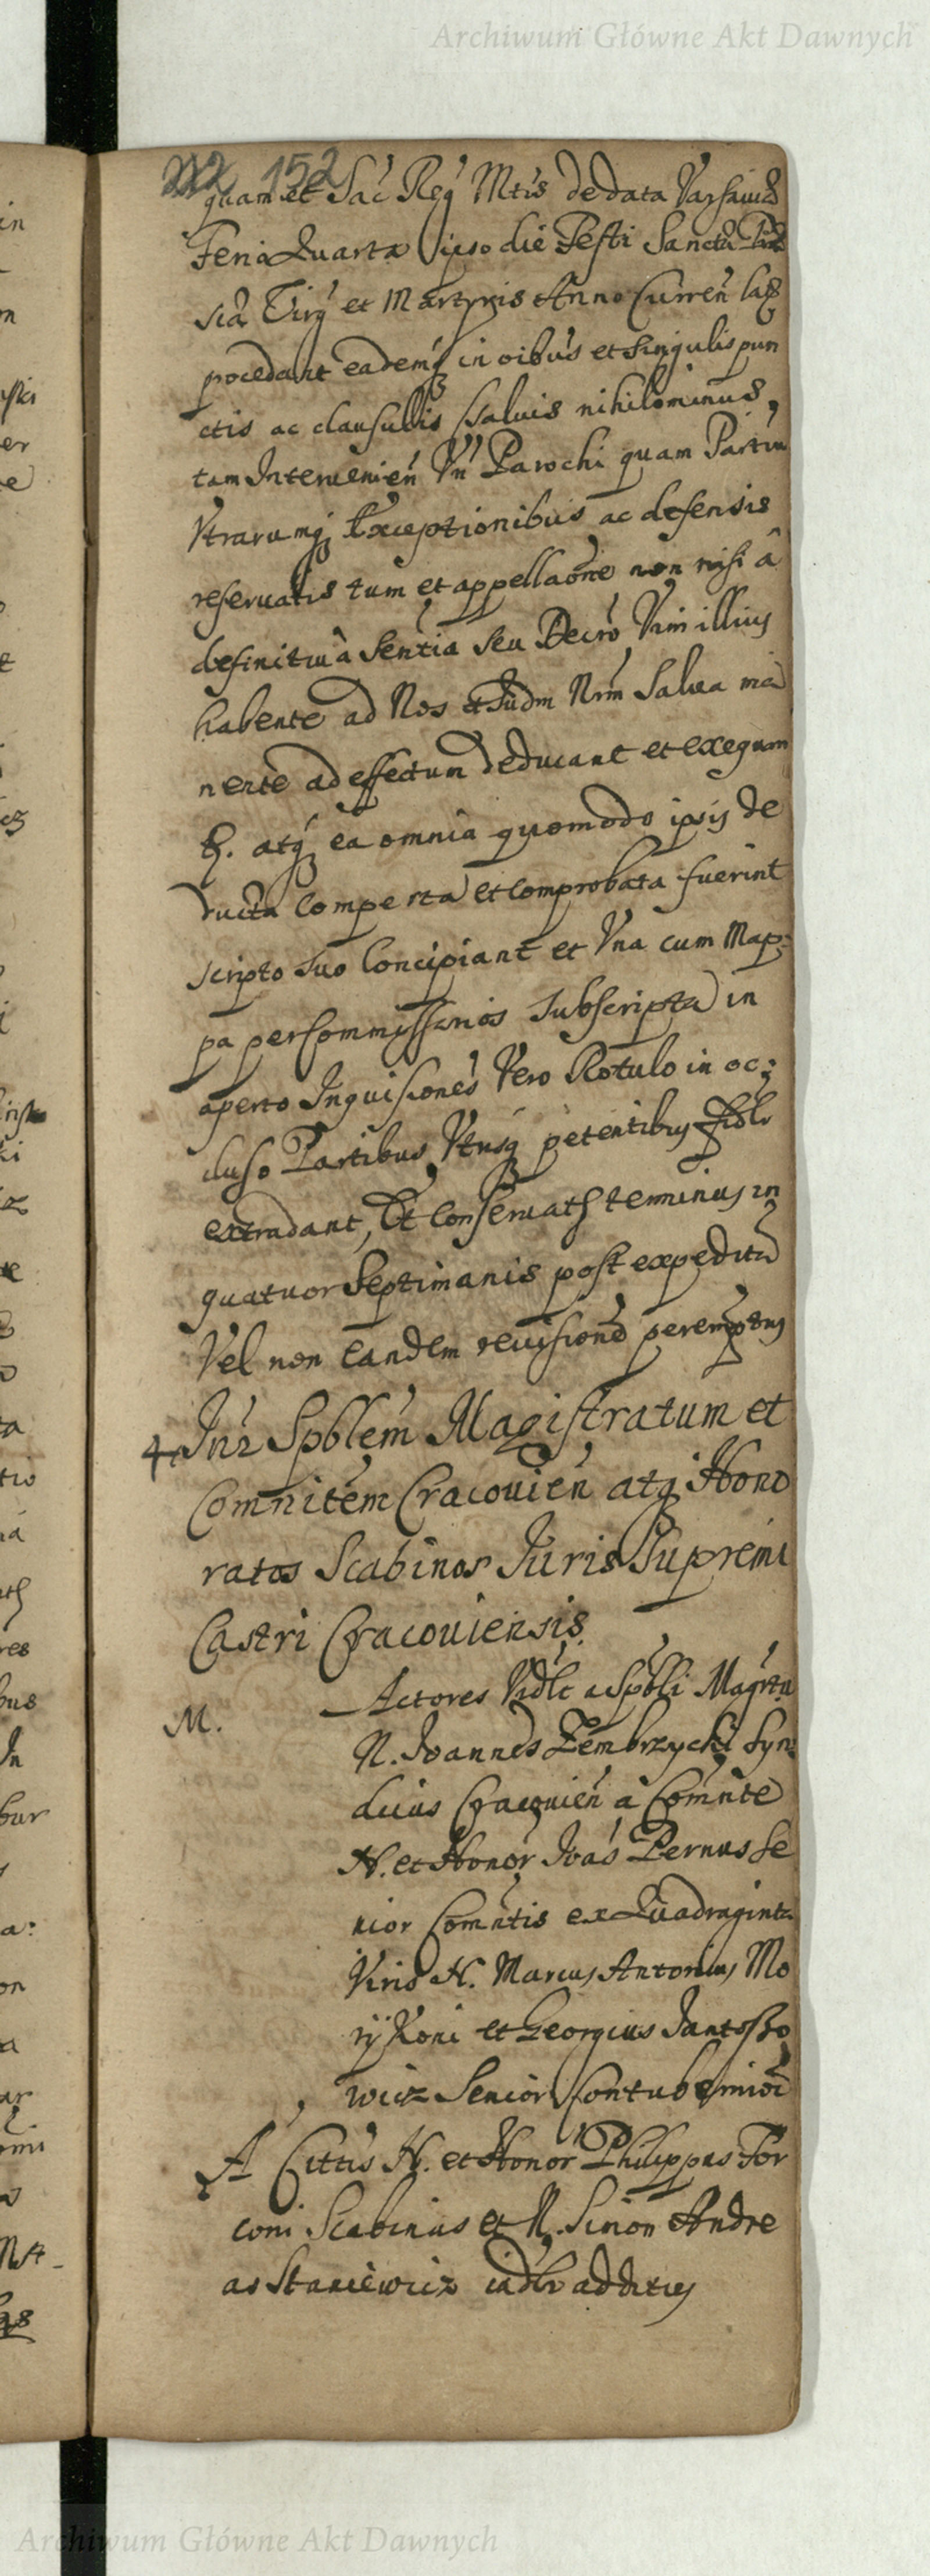 Archiwum Główne Akt Dawnych
152
quam et Sac Reg Mtis de data Varsavi
Feria Quarta ipso die Festi Sanctæ
ciæ Virg et Martyris Anno Curren
procedant eademq in oibus et singulis pun
ctis ac clausulis salvis nihilominus,
tam Intervenien Vn Parochi quam Partiu
Utrarumq Exceptionibus ac defensis
reservatis tum et appellaone non nisi â
definitivâ Sentia seu Decro Vim illius
habente ad Nos et Judm Nrm Salva ma
nente ad effectum deducant et exequan
tur. atq ea omnia quomodo ipsis de
ducta comperta et comprobata fuerint
scripto suo Concipiant et Una cum Map:
pa per Commissarios subscripta in
aperto Inquisiones Vero Rotulo in oc:
cluso Partibus Utrisq petentibus
extradant, Et Conservatq terminus in
quatuor Septimanis post expeditā
Vel non eandem revisionē peremptus
4. Inr Spblem Magistratum et
Comnitem Cracovien atq Hono
ratos Scabinos Juris Supremi
Castri Cracoviensis.
M. Actores Vidlt a Spbli Magrtu
N. Joannes Zembrzycki Syn:
dicus Cracovien a Comnte
N. et Honor Joas Pernus Se
nior Comntis ex Quadraginta
Viris N. Marcus Antonius Mo
rykoni et Georgius Jantoszo
wicz Senior Contubernior
A Cittis N. et Honor Philippus For
coni Scabinus et N. Simon Andre
as Staniewicz additus
Archiwum Główne Akt Dawnych